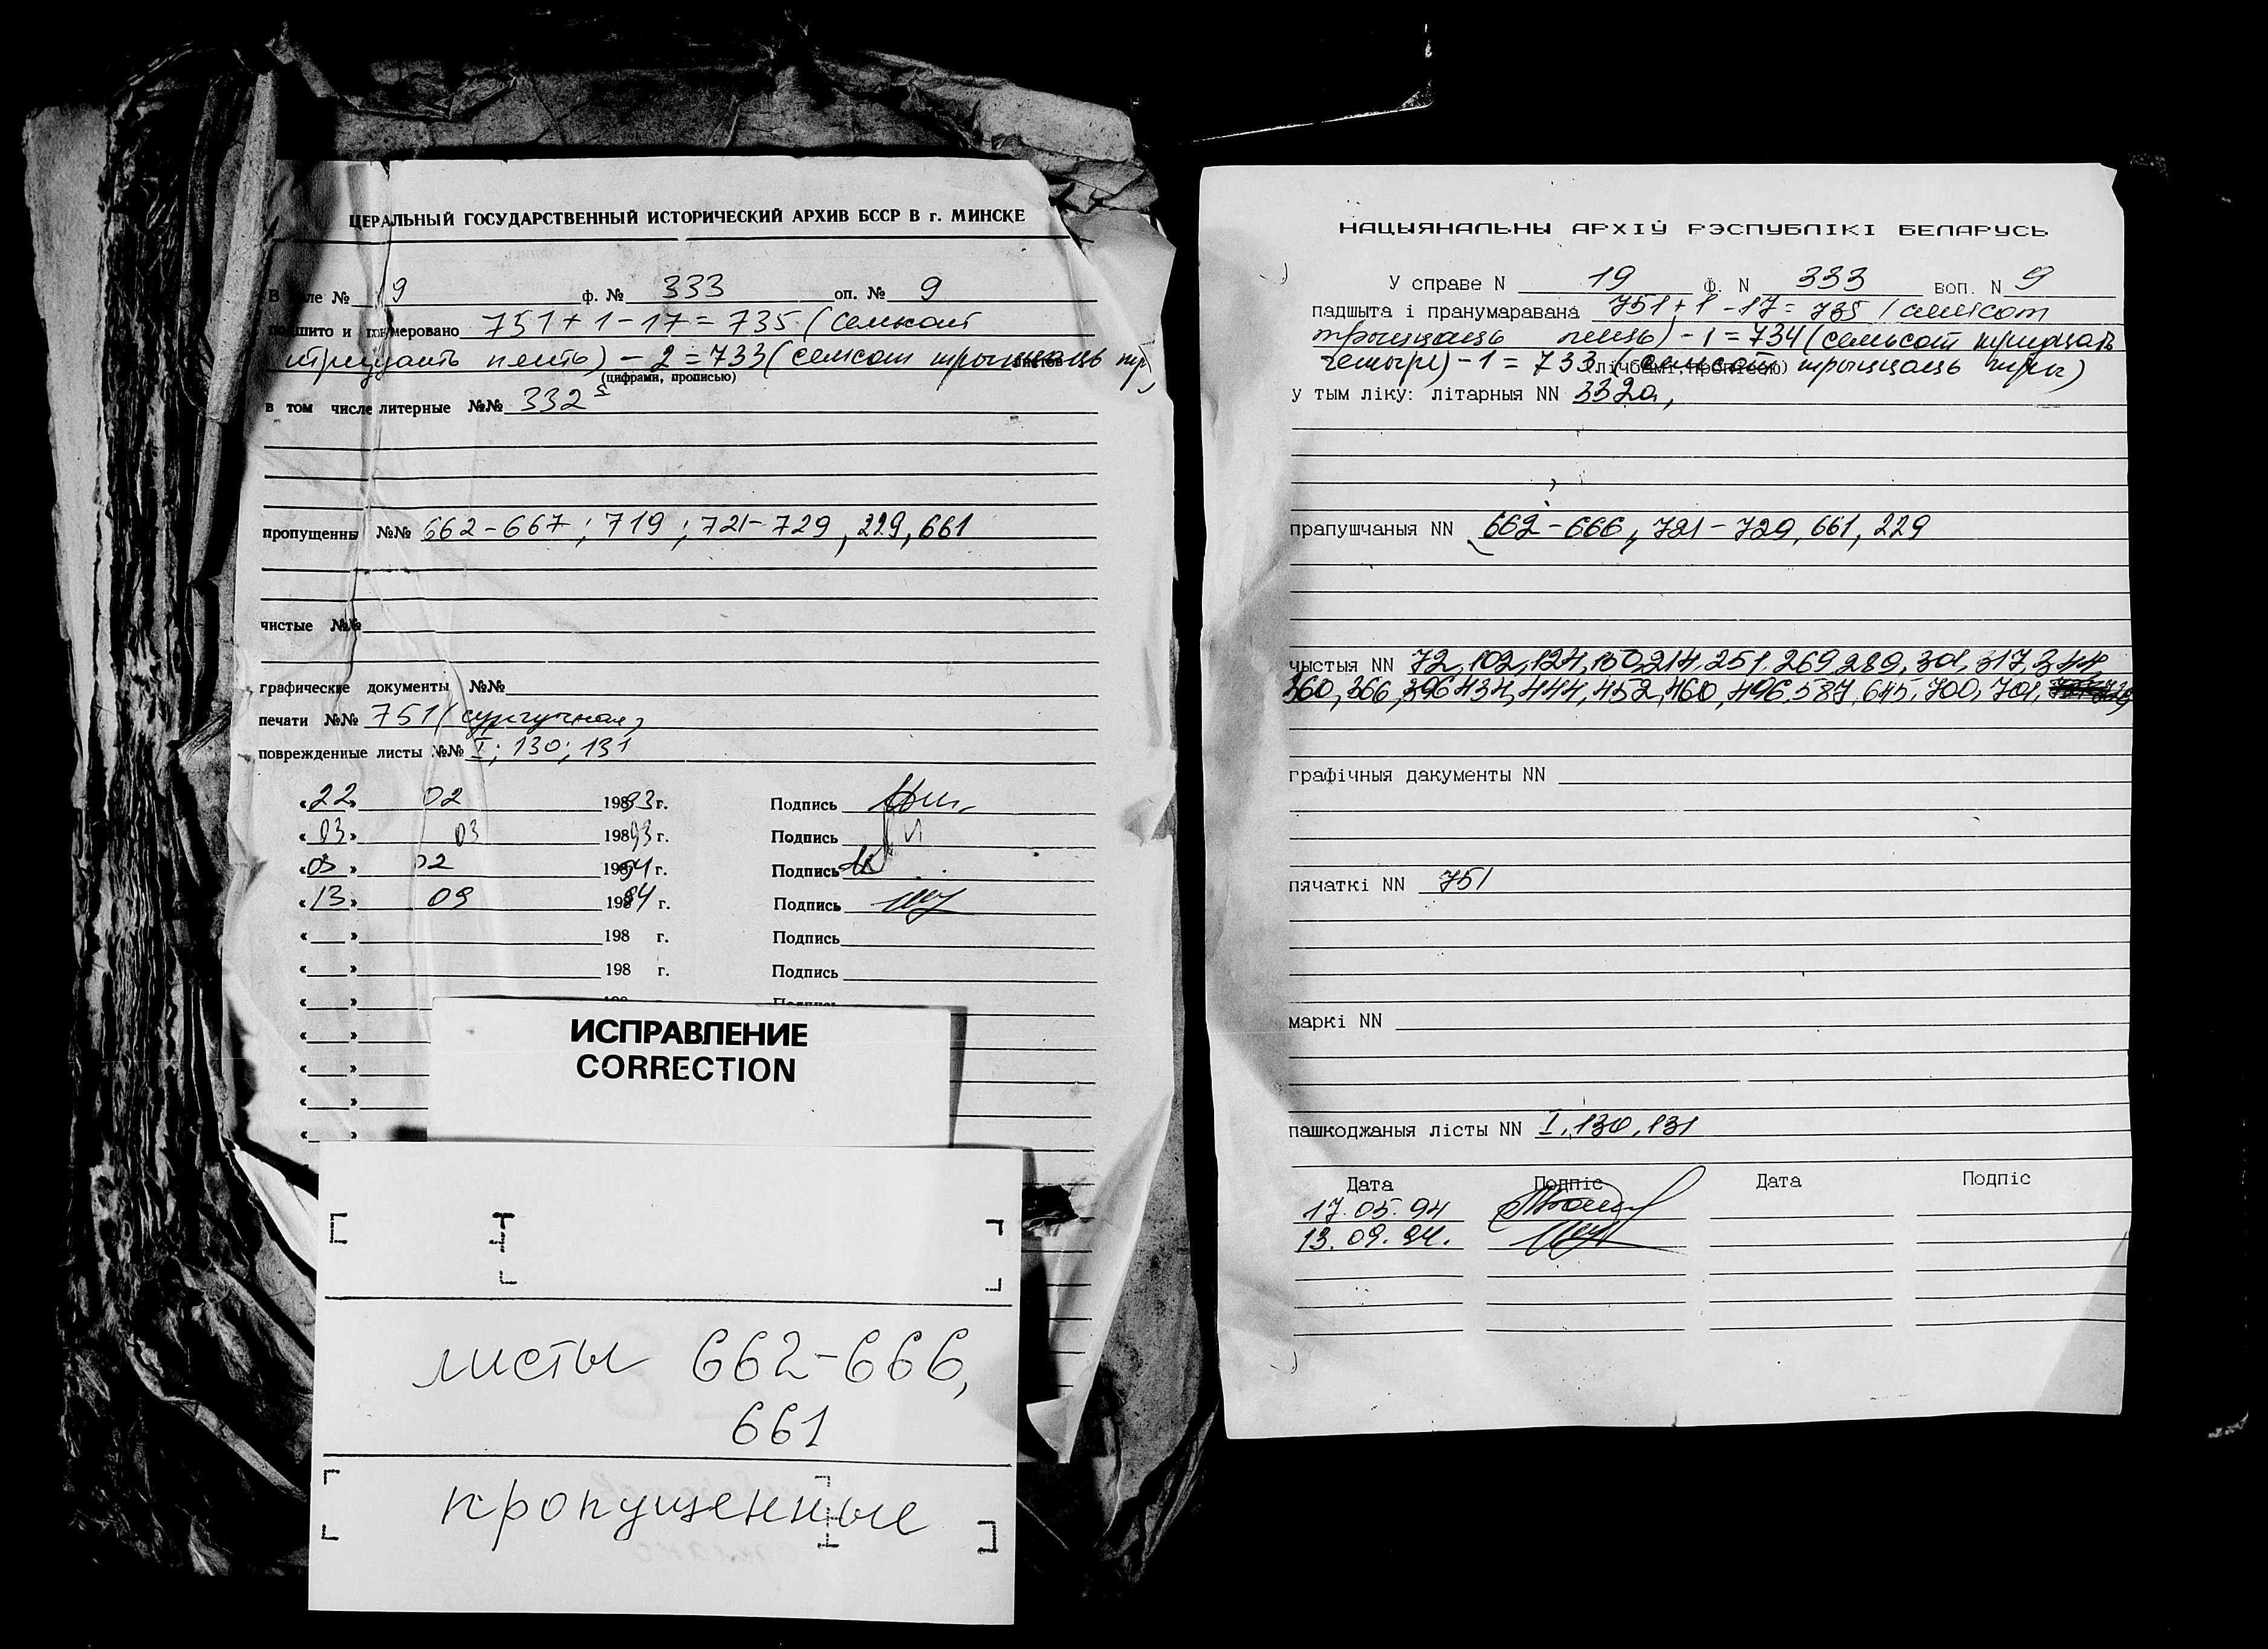 ЦЕРАЛЬНЫЙ ГОСУДАРСТВЕННЫЙ ИСТОРИЧЕСКИЙ АРХИВ БССР В г. МИНСКЕ
В деле № 19 ф. № 333 оп. № 9
подшито и пронумеровано 751 + 1 – 17 = 735 (семьсот
тридцать пять) – 2 = 733 (семсот трыццаць тры)
(цифрами, прописью)
в том числе литерные №№ 332
пропущены №№ 662-667; 719; 721-729, 229, 661
чистые №№
графические документы №№
печати №№ 751 (сургучная)
поврежденные листы №№ I; 130; 131
«22» 02 19893 г. Подпись
«03» 03 19893 г. Подпись
«03» 02 19894 г. Подпись
«13» 09 19894 г. Подпись
«__» 198 г. Подпись
«__» 198 г. Подпись
ИСПРАВЛЕНИЕ
CORRECTION
листы 662-666,
661
пропущенные
НАЦЫЯНАЛЬНЫ АРХІЎ РЭСПУБЛІКІ БЕЛАРУСЬ
У справе N 19 ф. N 333 воп. N 9
падшыта і пранумаравана 751 + 1 - 17 = 735 (семсот
трыццаць пяць) - 1 = 734 (семьсот тридцать
четыре) - 1 = 733 (семсот трыццаць тры)
(лічбамі, пропіссю)
у тым ліку: літарныя NN 332а,
прапушчаныя NN 662-666, 721-729, 661, 229
чыстыя NN 72, 102, 124, 150, 214, 251, 269, 289, 301, 317, 344
360, 366, 396, 434, 444, 452, 460, 496, 587, 645, 700, 701,
графічныя дакументы NN
пячаткі NN 751
маркі NN
пашкоджаныя лісты NN I, 130, 131
Дата Подпіс Дата Подпіс
17.05.94
13.09.94.